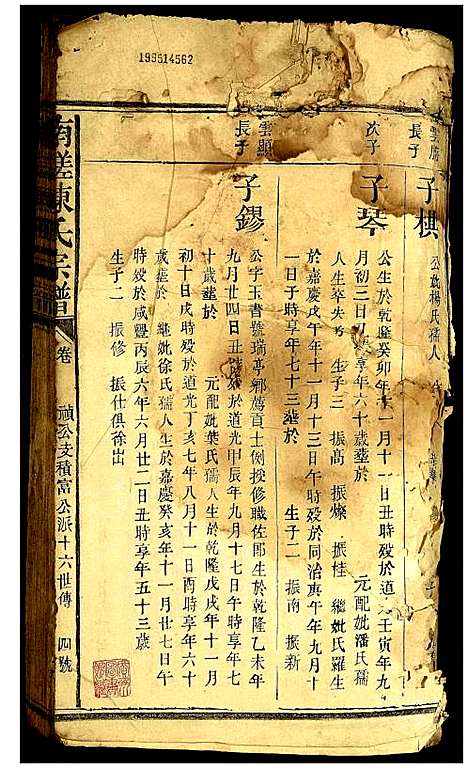 199514562
長子
子棋
公妣楊氏孺人
次子
子琴
公生於乾隆癸卯年十一月十一日丑時歿於道光壬寅年九
月初三日 享年六十歲葬於 元配妣潘氏孺
人生卒失考 生子三 振高 振燦 振桂 繼妣氏羅生
於嘉慶戊午年十一月十三日午時歿於同治庚午年九月十
一日子時享年七十三葬於 生子二 振南 振新
雲顯
長子
子鏐
公字玉書號瑞亭鄉薦貢士例授修職佐郎生於乾隆乙未年
九月廿四日丑時歿於道光甲辰年九月十七日午時享年七
十歲葬於 元配妣葉氏孺人生於乾隆戊戌年十一月
初十日戌時歿於道光丁亥七年八月十一日酉時享年六十
歲葬於 繼妣徐氏孺人生於嘉慶癸亥年十一月廿七日午
時歿於咸豐丙辰六年六月廿一日丑時享年五十三歲
生子二 振修 振仕俱徐出
南槎陳氏宗譜
卷
禎公支積富公派十六世傳
四號